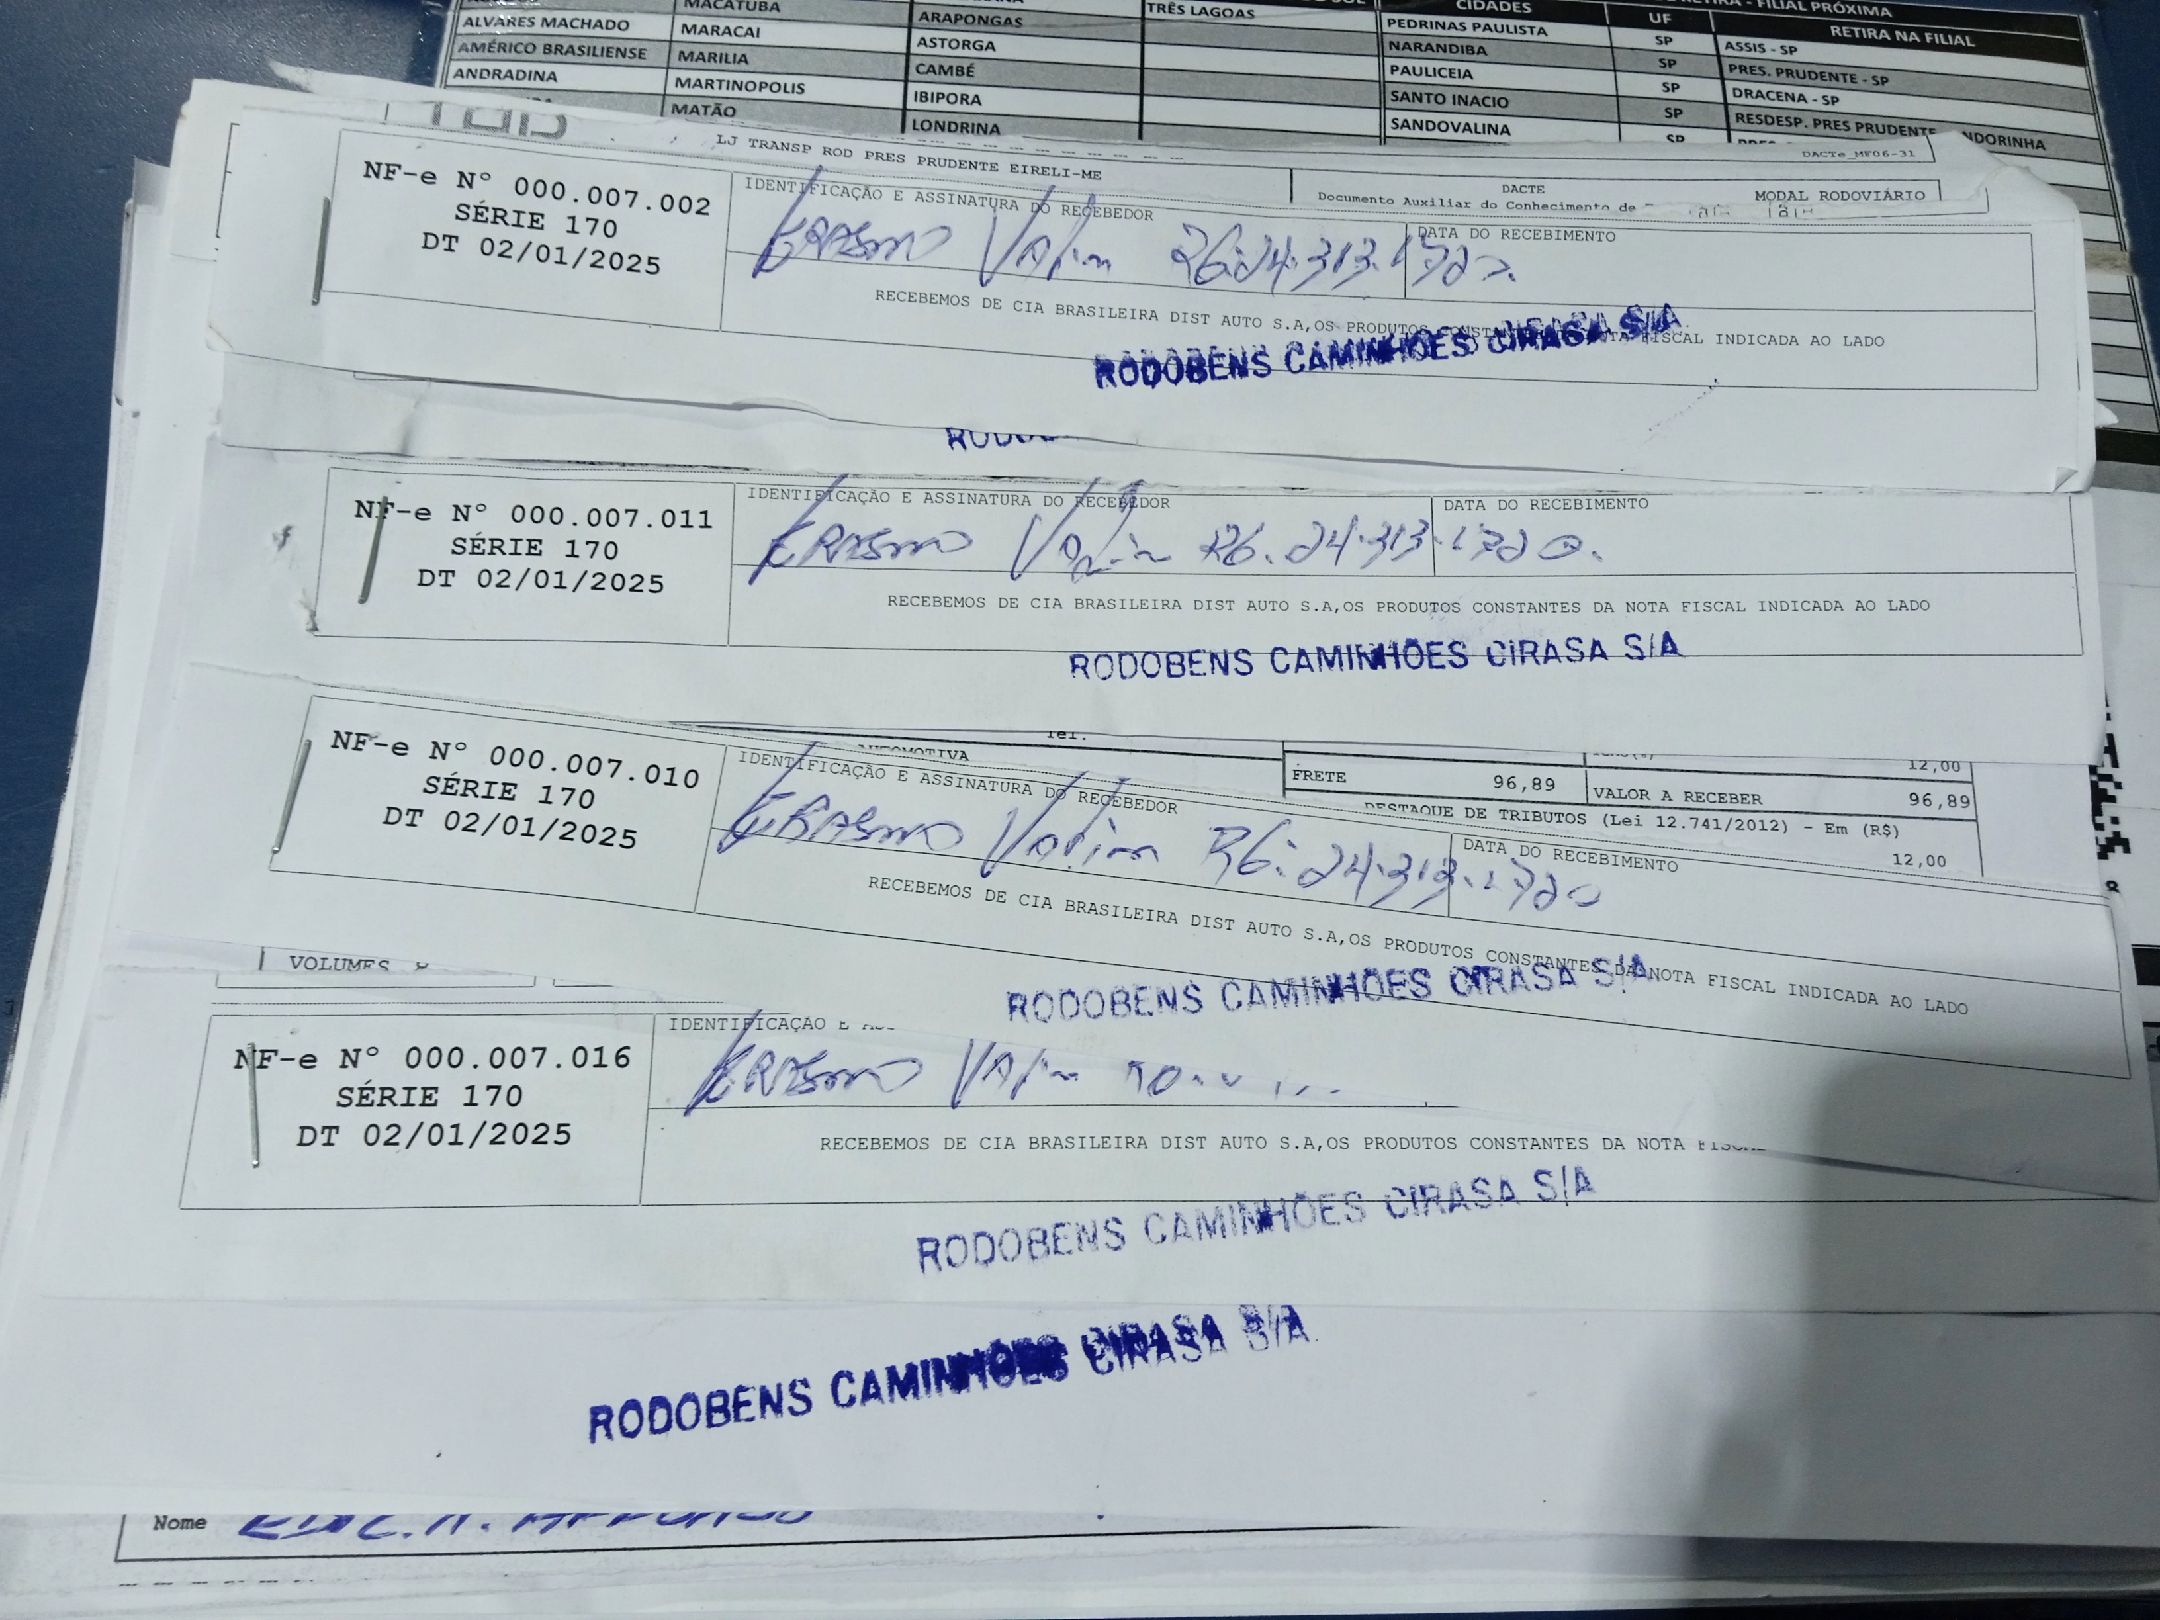 MACATUBA
TRÊS LAGOAS
CIDADES
UF
RETIRA - FILIAL PRÓXIMA
RETIRA NA FILIAL
ALVARES MACHADO MARACAI ARAPONGAS PEDRINAS PAULISTA SP ASSIS - SP
AMÉRICO BRASILIENSE MARILIA ASTORGA NARANDIBA SP PRES. PRUDENTE - SP
ANDRADINA MARTINOPOLIS CAMBÉ PAULICEIA SP DRACENA - SP
MATÃO IBIPORA SANTO INACIO SP RESDESP. PRES PRUDENTE
LONDRINA SANDOVALINA SP
LJ TRANSP ROD PRES PRUDENTE EIRELI-ME
DACTe_MF06-31
DACTE
Documento Auxiliar do Conhecimento de
MODAL RODOVIÁRIO
NF-e Nº 000.007.002
SÉRIE 170
DT 02/01/2025
IDENTIFICAÇÃO E ASSINATURA DO RECEBEDOR
DATA DO RECEBIMENTO
Erasmo Valim RG.24.313.1720.
RECEBEMOS DE CIA BRASILEIRA DIST AUTO S.A,OS PRODUTOS FISCAL INDICADA AO LADO
RODOBENS CAMINHÕES CIRASA S/A
NF-e Nº 000.007.011
SÉRIE 170
DT 02/01/2025
IDENTIFICAÇÃO E ASSINATURA DO RECEBEDOR
DATA DO RECEBIMENTO
Erasmo Valim RG. 24.313.1720.
RECEBEMOS DE CIA BRASILEIRA DIST AUTO S.A,OS PRODUTOS CONSTANTES DA NOTA FISCAL INDICADA AO LADO
RODOBENS CAMINHÕES CIRASA S/A
Tel.
AUTOMOTIVA
12,00
FRETE 96,89 VALOR A RECEBER 96,89
DESTAQUE DE TRIBUTOS (Lei 12.741/2012) - Em (R$)
12,00
NF-e Nº 000.007.010
SÉRIE 170
DT 02/01/2025
IDENTIFICAÇÃO E ASSINATURA DO RECEBEDOR
DATA DO RECEBIMENTO
Erasmo Valim RG: 24.313.1720
RECEBEMOS DE CIA BRASILEIRA DIST AUTO S.A,OS PRODUTOS CONSTANTES DA NOTA FISCAL INDICADA AO LADO
RODOBENS CAMINHÕES CIRASA S/A
VOLUMES
NF-e Nº 000.007.016
SÉRIE 170
DT 02/01/2025
IDENTIFICAÇÃO E
Erasmo Valim
RECEBEMOS DE CIA BRASILEIRA DIST AUTO S.A,OS PRODUTOS CONSTANTES DA NOTA
RODOBENS CAMINHÕES CIRASA S/A
RODOBENS CAMINHÕES CIRASA S/A
Nome